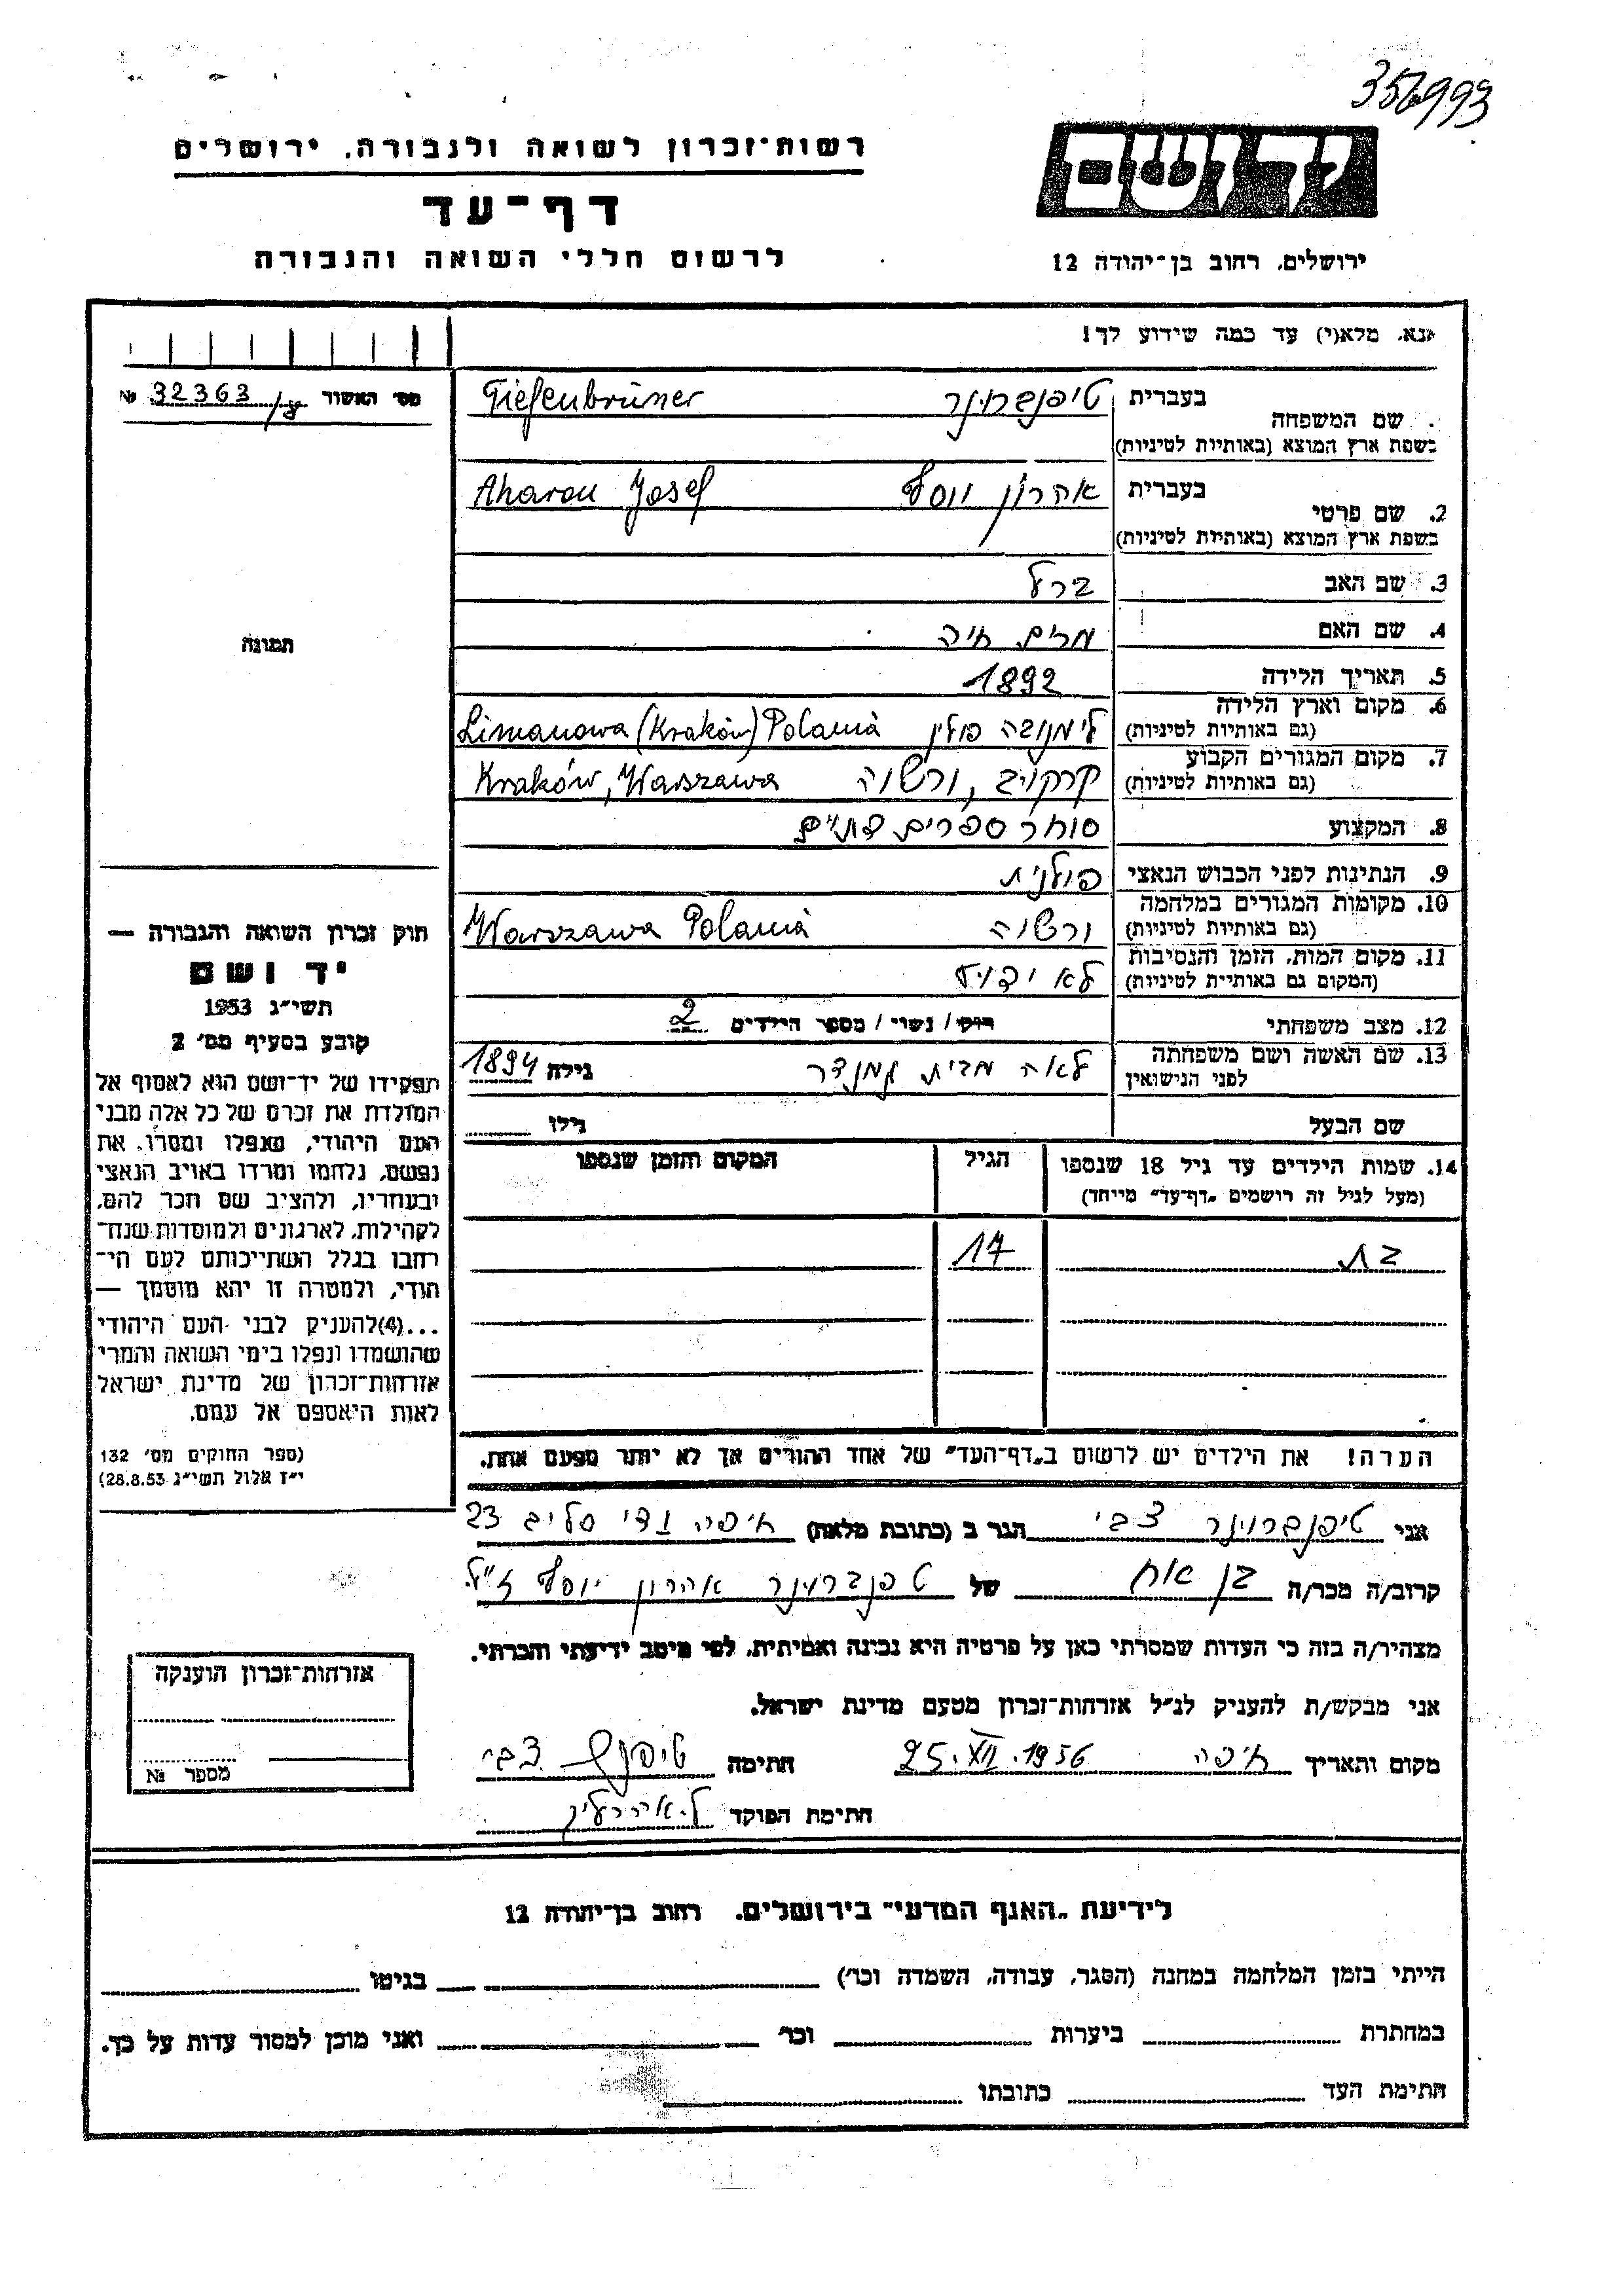 356993
רשות־זכרון לשואה ולגבורה, ירושלים
דף־עד
לרשום חללי השואה והגבורה
יד ושם
ירושלים, רחוב בן־יהודה 12
נא, מלא(י) עד כמה שידוע לך!
מס׳ האשור 32363/ № 
בעברית טיפנברונר Tiefenbrüner
שם המשפחה
בשפת ארץ המוצא (באותיות לטיניות)
בעברית אהרון יוסף Aharon Josef
2. שם פרטי
בשפת ארץ המוצא (באותיות לטיניות)
3. שם האב ברל
4. שם האם מרים חיה
תמונה
5. תאריך הלידה 1892
6. מקום וארץ הלידה
(גם באותיות לטיניות) לימנובה פולין Limanowa (Kraków) Polania
7. מקום המגורים הקבוע
(גם באותיות לטיניות) קרקויב, ורשוה Kraków, Warszawa
8. המקצוע סוחר ספרים דתיים
9. הנתינות לפני הכבוש הנאצי פולנית
10. מקומות המגורים במלחמה
(גם באותיות לטיניות) ורשוה Warszawa Polania
11. מקום המות, הזמן והנסיבות
(המקום גם באותיות לטיניות) לא ידוע
12. מצב משפחתי רווק / נשוי / מספר הילדים 2
13. שם האשה ושם משפחתה
לפני הנישואין לאה מבית גילה 1894
שם הבעל גילו
14. שמות הילדים עד גיל 18 שנספו הגיל המקום והזמן שנספו
(מעל לגיל זה רושמים "דף־עד" מייחד)
בת 17
הערה! את הילדים יש לרשום ב"דף־העד" של אחד ההורים אך לא יותר מפעם אחת.
חוק זכרון השואה והגבורה —
יד ושם
תשי״ג 1953
קובע בסעיף מס׳ 2
תפקידו של יד־ושם הוא לאסוף אל
המולדת את זכרם של כל אלה מבני
העם היהודי, שנפלו ומסרו את
נפשם, נלחמו ומרדו באויב הנאצי
ובעוזריו, ולהציב שם וזכר להם,
לקהילות, לארגונים ולמוסדות שנח־
רבו בגלל השתייכותם לעם הי־
הודי, ולמטרה זו יהא מוסמך —
...(4) להעניק לבני העם היהודי
שהושמדו ונפלו בימי השואה והמרי
אזרחות־זכרון של מדינת ישראל
לאות היאספם אל עמם.
(ספר החוקים מס׳ 132
י״ז אלול תשי״ג 28.8.53)
אני טיפנברוינר צבי הגר ב (כתובת מלאה) חיפה ודי סליב 23
קרוב/ה מכר/ה בן אח של טפנברוינר אהרון יוסף ז״ל
מצהיר/ה בזה כי העדות שמסרתי כאן על פרטיה היא נכונה ואמיתית, לפי מיטב ידיעתי והכרתי.
אני מבקש/ת להעניק לנ״ל אזרחות־זכרון מטעם מדינת ישראל.
מקום ותאריך חיפה 25.XII.1956 חתימה צבי
חתימת הפוקד
אזרחות־זכרון הוענקה
מספר №
לידיעת "האגף המדעי" בירושלים, רחוב בן־יהודה 12
הייתי בזמן המלחמה במחנה (הסגר, עבודה, השמדה וכו׳) בגיטו
במחתרת ביערות וכו׳ ואני מוכן למסור עדות על כך.
חתימת העד כתובתו